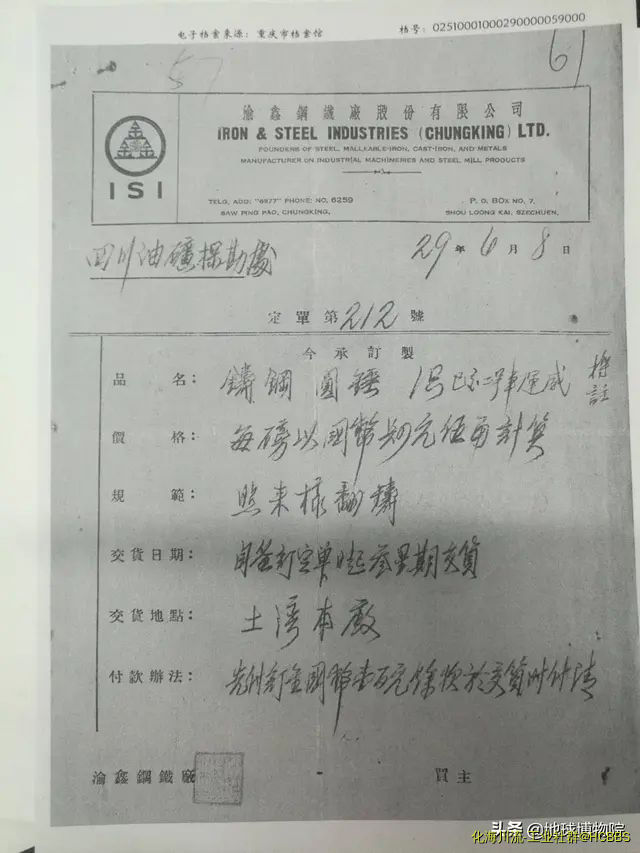 电子档案来源：重庆市档案馆 档号：02510001000290000059000
57
61
渝鑫鋼鐵廠股份有限公司
IRON & STEEL INDUSTRIES (CHUNGKING) LTD.
FOUNDERS OF STEEL, MALLEABLE-IRON, CAST-IRON, AND METALS
MANUFACTURER ON INDUSTRIAL MACHINERIES AND STEEL MILL PRODUCTS
ISI
TELG. ADD: "6977" PHONE: NO. 6259
SAW PING PAO, CHUNGKING,
P. O. BOX NO. 7,
SHOU LOONG KAI, SZECHUEN,
四川油礦探勘處
29年6月8日
定單第212號
今承訂製
品名：鑄鋼圓錘
價格：每磅以國幣元伍角計算
規範：照來樣翻鑄
交貨日期：自簽訂定單日起叁星期交貨
交貨地點：土灣本廠
付款辦法：先付訂金國幣壹百元餘項於交貨時付清
渝鑫鋼鐵廠
買主
头条@地球博物院
化海川流-工业社群@HCBBS